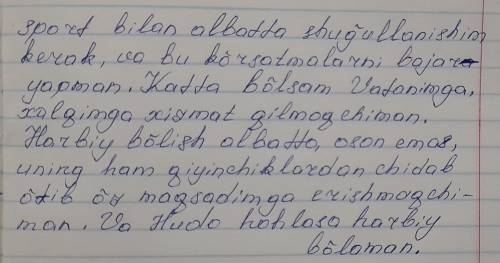 sport bilan albatta shuğullanishim
kerak, va bu körsatmalarni bajara
yapman. Katta bölsam Vatanimga,
xalqimga xizmat qilmoqchiman.
Harbiy bölish albatta, oson emas,
uning ham qiyinchiklardan chidab
ötib öz maqsadimga erishmoqchi-
man. Va Hudo hohlasa harbiy
bölaman.